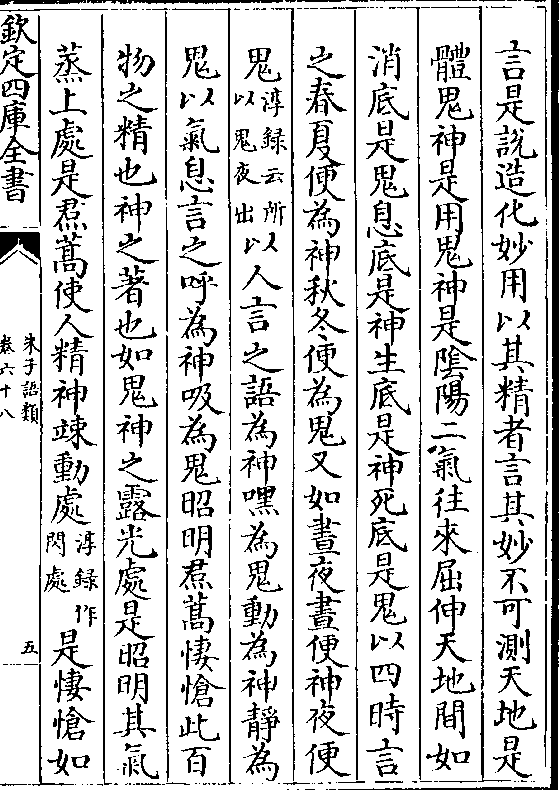 言是說造化妙用以其精者言其妙不可測天地是
體鬼神是用鬼神是陰陽二氣往來屈伸天地間如
消底是鬼息底是神生底是神死底是鬼以四時言
之春夏便為神秋冬便為鬼又如晝夜晝便神夜便
鬼淳録云所以鬼夜出以人言之語為神嘿為鬼動為神靜為
鬼以氣息言之呼為神吸為鬼昭明焄蒿悽愴此百
物之精也神之著也如鬼神之露光處是昭明其氣
蒸上處是焄蒿使人精神竦動處淳録作閃處是悽愴如
欽定四庫全書
朱子語類
卷六十八
五